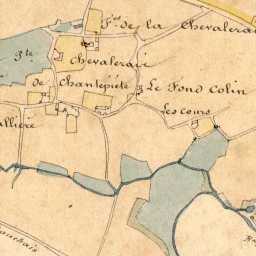 Fme de la Chevalerai
Pte
Chevaleraie
de Chantepiété
Le Fond Colin
Les cours
allière